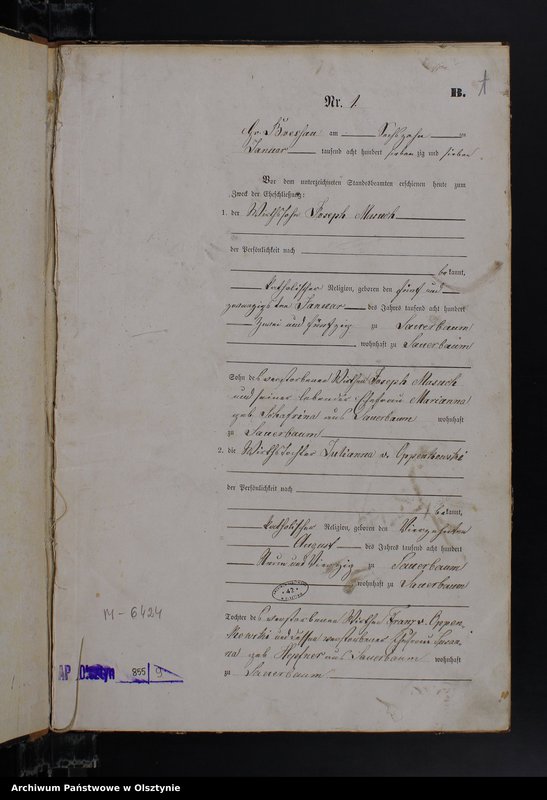 B. 1
Nr. 1.
Gr. Boessau am Sechszehn ten
Januar tausend acht hundert sieben zig und sieben
Vor dem unterzeichneten Standesbeamten erschienen heute zum
Zweck der Eheschließung:
1. der Wirthssohn Joseph Masuch
der Persönlichkeit nach
bekannt,
katholischer Religion, geboren den fünf und
zwanzigsten Januar des Jahres tausend acht hundert
zwei und fünfzig zu Sauerbaum
wohnhaft zu Sauerbaum
Sohn des verstorbenen Wirthen Joseph Masuch
und seiner lebenden Ehefrau Marianna
geb. aus Sauerbaum wohnhaft
zu Sauerbaum
2. die Wirthstochter Julianna v. Oppenkowski
der Persönlichkeit nach
bekannt,
katholischer Religion, geboren den Vierzehnten
August des Jahres tausend acht hundert
Neun und Vierzig zu Sauerbaum
wohnhaft zu Sauerbaum
42
Tochter des verstorbenen Wirthen Franz v. Oppen-
kowski und dessen verstorbener Ehefrau Susan-
na geb. Hepfner aus Sauerbaum wohnhaft
zu Sauerbaum
M-6424
AP Olsztyn 855 9
Archiwum Państwowe w Olsztynie